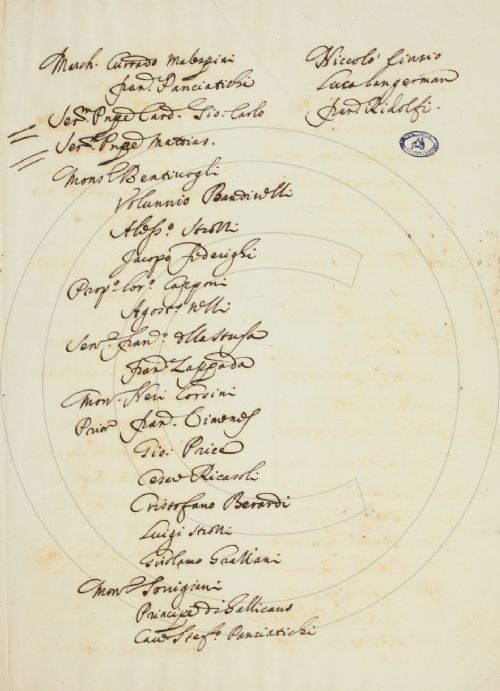 March. Currado Malespini
Fran.º Panciatichi
Ser.mo Pnpe Card. Gio: Carlo
Ser.mo Pnpe Mattias.
Mons.r Bentivogli
Volunnio Bandinelli
Aless.º Strozzi
Jacopo Federighi
Prop.º Lor.º Capponi
Agost.º Nelli
Sen.r Fran.º della Stufa
Fran.º Zappada
Mon.r Neri Corsini
Prior Fran.º Cimenes
Gio: Price
Cesare Ricasoli
Cristofano Berardi
Luigi Strozzi
Girolamo Gratiani
Mons.r
Principe di Gallicano
Cav.re Stef.º Panciatichi
Niccolò
Luca
Fran.º Ridolfi.